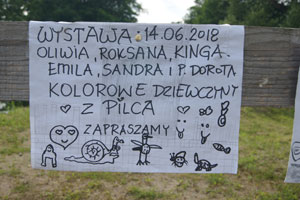 WYSTAWA, 14.06.2018
OLIWIA, ROKSANA, KINGA,
EMILA, SANDRA I P. DOROTA
KOLOROWE DZIEWCZYNY
Z PILCA
ZAPRASZAMY